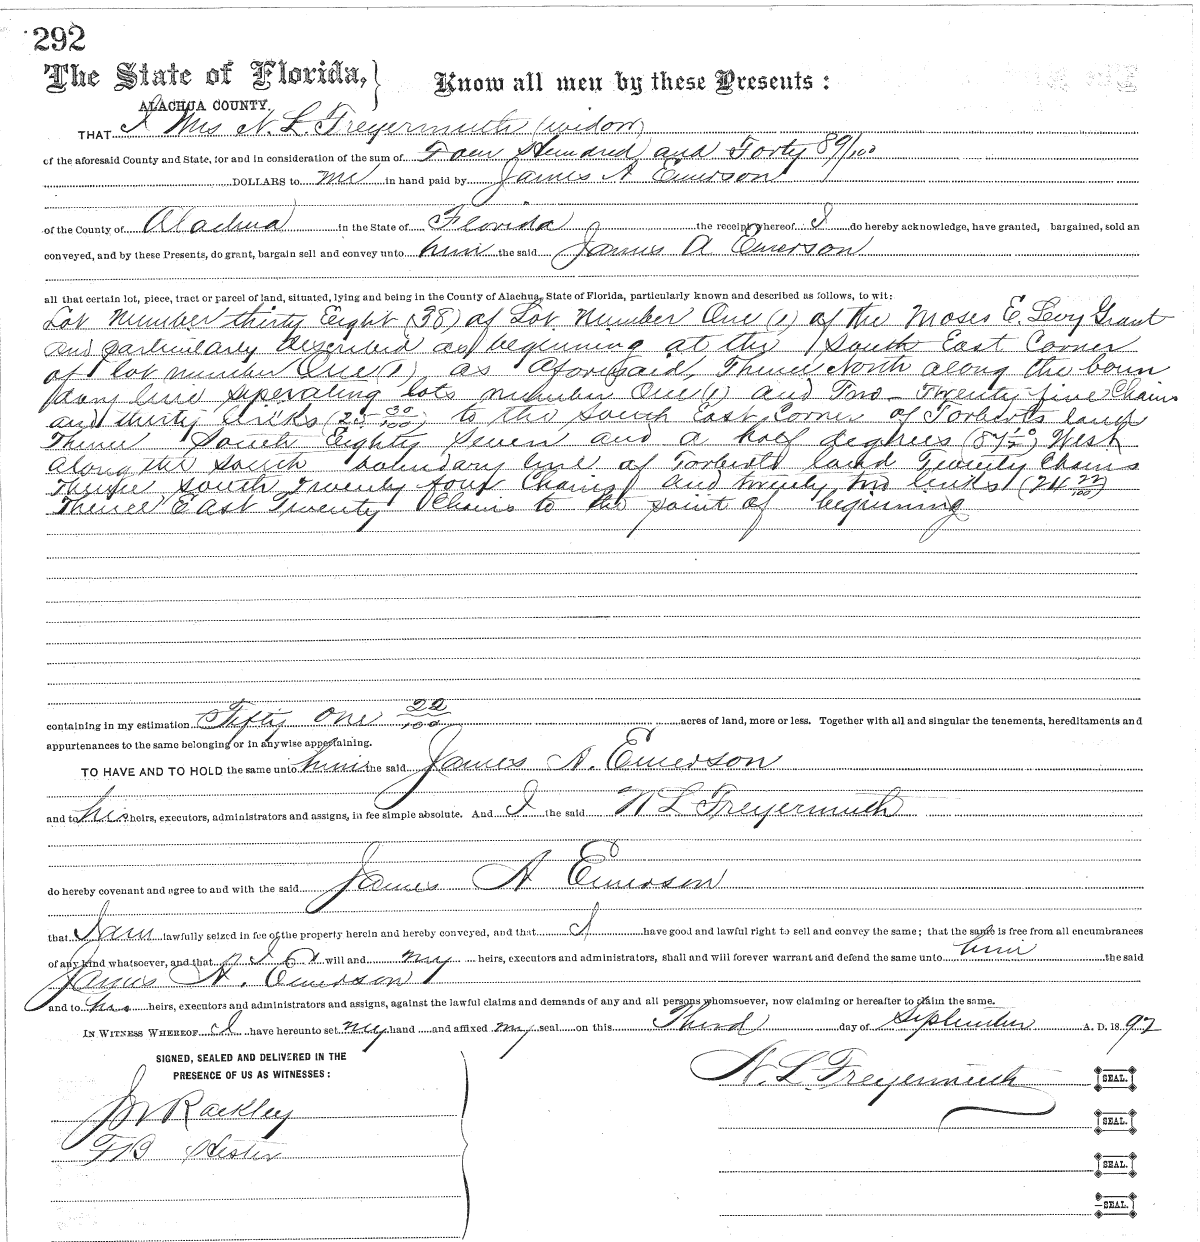 292
The State of Florida,
Know all men by these Presents :
ALACHUA COUNTY.
THAT I Mrs N. L. Freyermuth (widow)
of the aforesaid County and State, for and in consideration of the sum of Four Hundred and Forty 89/100
DOLLARS to me in hand paid by James A Emerson
of the County of Alachua in the State of Florida the receipt whereof I do hereby acknowledge, have granted, bargained, sold an
conveyed, and by these Presents, do grant, bargain sell and convey unto him the said James A Emerson
all that certain lot, piece, tract or parcel of land, situated, lying and being in the County of Alachua, State of Florida, particularly known and described as follows, to wit:
Lot Number thirty Eight (38) of Lot Number One (1) of the Moses E. Levy Grant
and particularly described as beginning at the South East Corner
of lot number One (1) as aforesaid, Thence North along the boun
dary line seperating lots number One (1) and Two - Twenty five Chains
and thirty links (25 30/100) to the South East Corner of Torberts land
Thence South Eighty Seven and a half degrees (87 1/2°) West
along the south boundary line of Torberts land Twenty Chains
Thence South Twenty four Chains and twenty two links (24 22/100)
Thence East Twenty Chains to the point of beginning
containing in my estimation Fifty One 22/100 acres of land, more or less. Together with all and singular the tenements, hereditaments and
appurtenances to the same belonging or in anywise appertaining.
TO HAVE AND TO HOLD the same unto him the said James A. Emerson
and to his heirs, executors, administrators and assigns, in fee simple absolute. And I the said N L Freyermuth
do hereby covenant and agree to and with the said James A Emerson
that I am lawfully seized in fee of the property herein and hereby conveyed, and that I have good and lawful right to sell and convey the same; that the same is free from all encumbrances
of any kind whatsoever, and that I will and my heirs, executors and administrators, shall and will forever warrant and defend the same unto him the said
James A. Emerson
and to his heirs, executors and administrators and assigns, against the lawful claims and demands of any and all persons whomsoever, now claiming or hereafter to claim the same.
IN WITNESS WHEREOF I have hereunto set my hand and affixed my seal on this Third day of September A. D. 1892
SIGNED, SEALED AND DELIVERED IN THE
PRESENCE OF US AS WITNESSES :
N. L. Freyermuth SEAL.
Rackley SEAL.
F B Hester SEAL.
SEAL.